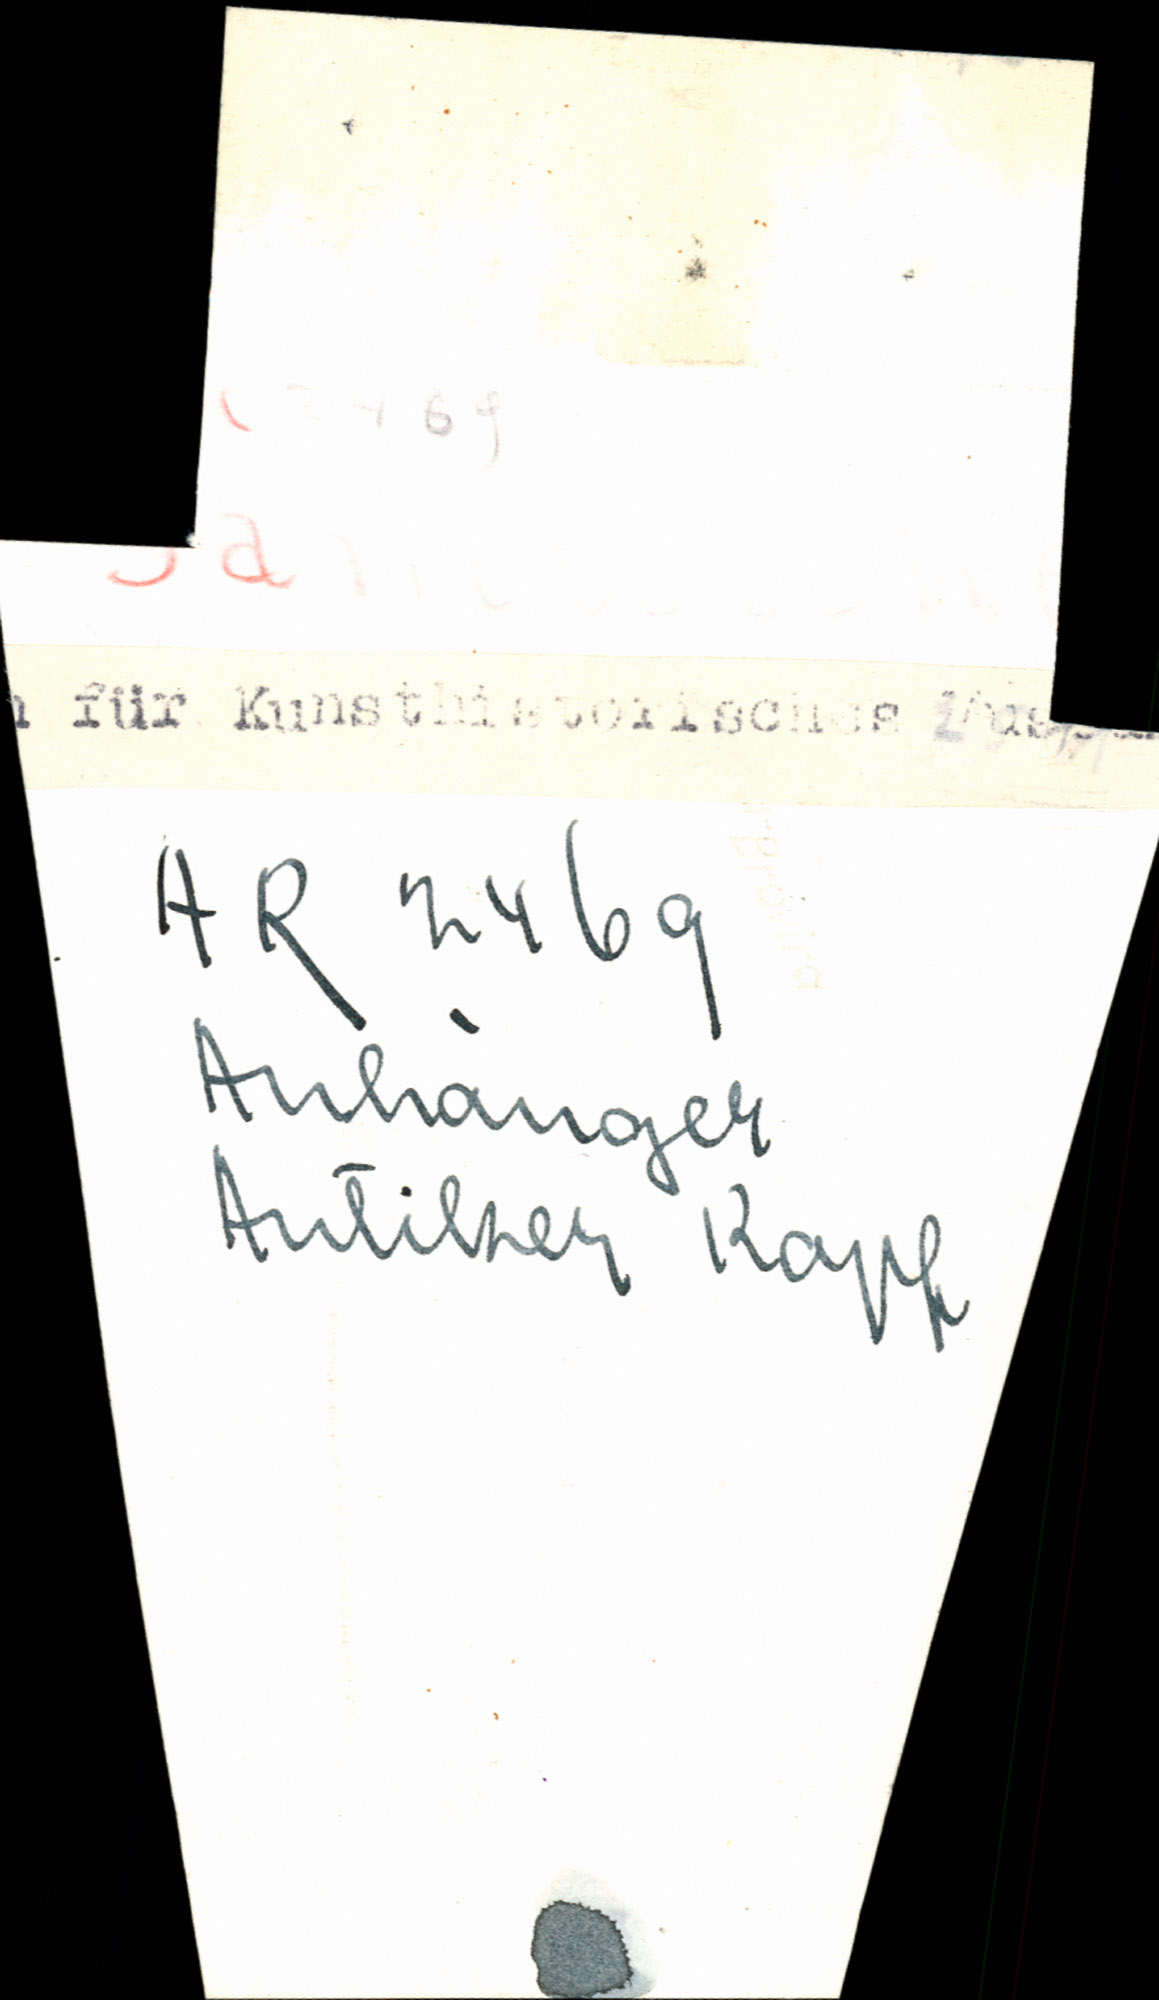 2469
für Kunsthistorisches
AR 2469
Anhänger
Antiker Kopf